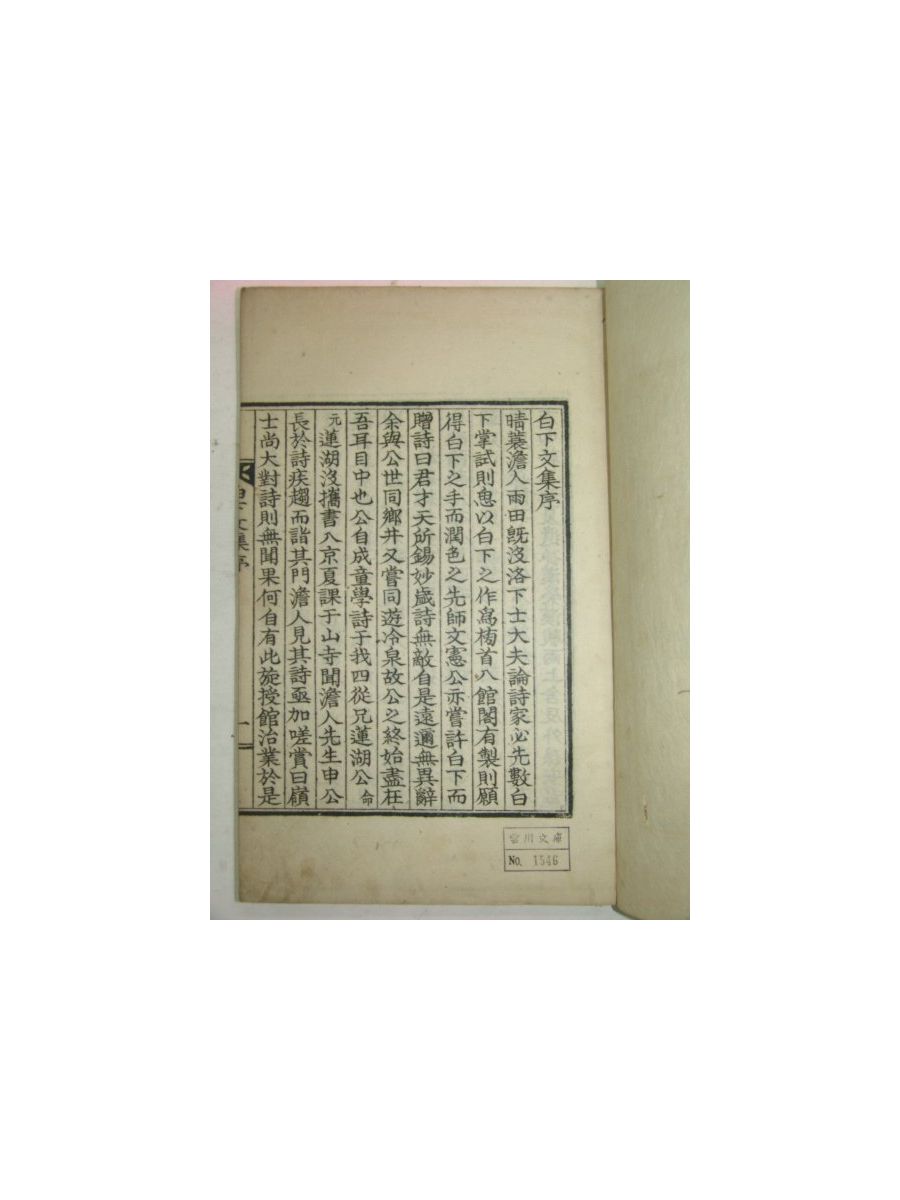 白下文集序
晴蓑澹人雨田旣沒洛下士大夫論詩家必先數白
下掌試則恖以白下之作爲榜首入館閣有製則願
得白下之手而潤色之先師文憲公亦嘗許白下而
贈詩曰君才天所錫妙歲詩無敵自是遠邇無異辭
余與公世同鄉井又嘗同遊冷泉故公之終始盡在
吾耳目中也公自成童學詩于我四從兄蓮湖公命
元蓮湖沒攜書入京夏課于山寺聞澹人先生申公
長於詩疾趨而詣其門澹人見其詩亟加嗟賞曰嶺
士尚大對詩則無聞果何自有此旋授館治業於是
文集序
一
川文庫
No. 1546